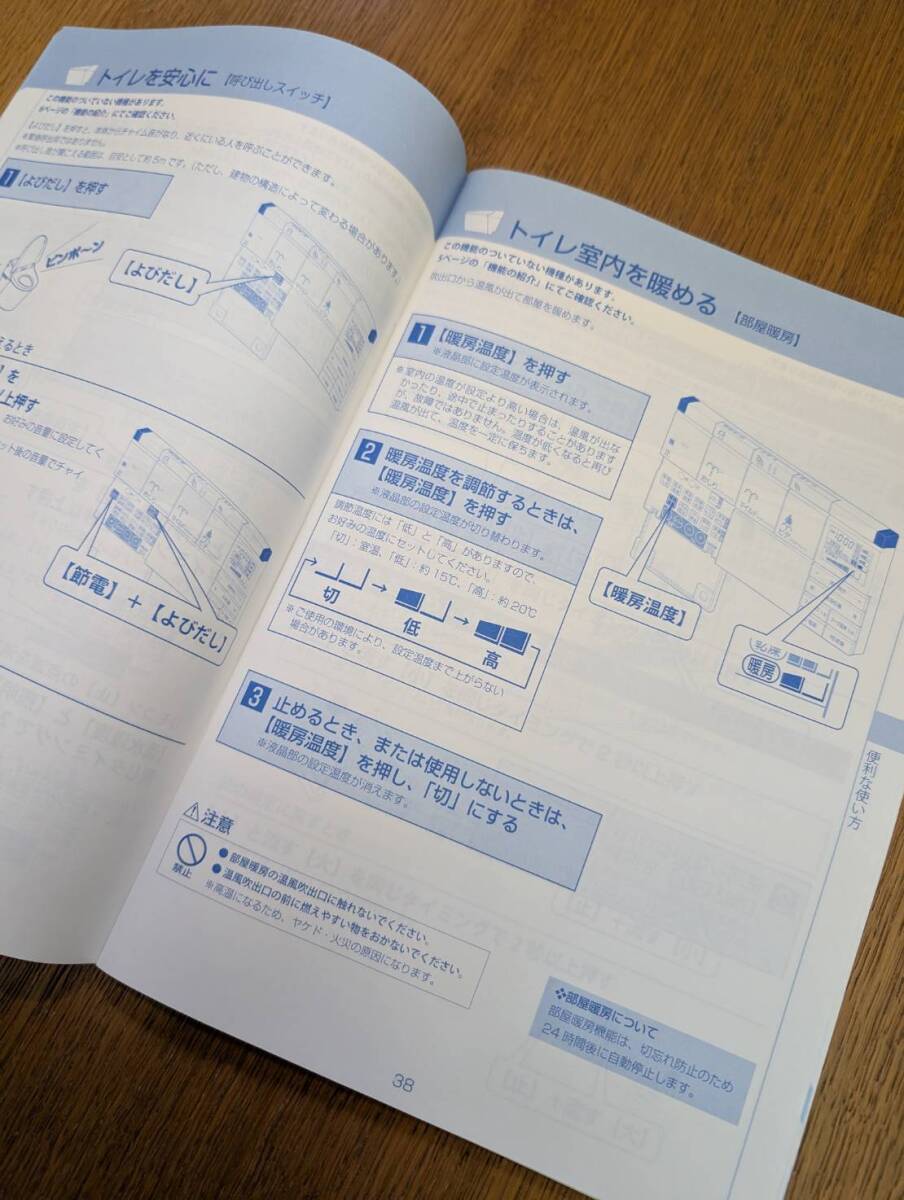 トイレを安心に【呼び出しスイッチ】
この機能のついていない機種があります。
5ページの「機能の紹介」にてご確認ください。
【よびだし】を押すと、本体からチャイム音がなり、近くにいる人を呼ぶことができます。
※緊急呼出用ではありません。
※呼び出し音が聞こえる範囲は、目安として約5mです。（ただし、建物の構造によって変わる場合があります。）
1【よびだし】を押す
ピンポーン
【よびだし】
えるとき
】を
以上押す
お好みの音量に設定してく
ット後の音量でチャイ
【節電】＋【よびだし】
トイレ室内を暖める【部屋暖房】
この機能のついていない機種があります。
5ページの「機能の紹介」にてご確認ください。
吹出口から温風が出て部屋を暖めます。
1【暖房温度】を押す
※液晶部に設定温度が表示されます。
※室内の温度が設定より高い場合は、温風が出な
かったり、途中で止まったりすることがあります
が、故障ではありません。温度が低くなると再び
温風が出て、温度を一定に保ちます。
2 暖房温度を調節するときは、
【暖房温度】を押す
※液晶部の設定温度が切り替わります。
調節温度には「低」と「高」がありますので、
お好みの温度にセットしてください。
「切」：室温、「低」：約15℃、「高」：約20℃
切
低
高
※ご使用の環境により、設定温度まで上がらない
場合があります。
【暖房温度】
乾燥
暖房
3 止めるとき、または使用しないときは、
【暖房温度】を押し、「切」にする
※液晶部の設定温度が消えます。
注意
禁止
●部屋暖房の温風吹出口に触れないでください。
●温風吹出口の前に燃えやすい物をおかないでください。
※高温になるため、ヤケド・火災の原因になります。
❖部屋暖房について
部屋暖房機能は、切忘れ防止のため
24時間後に自動停止します。
便利な使い方
38